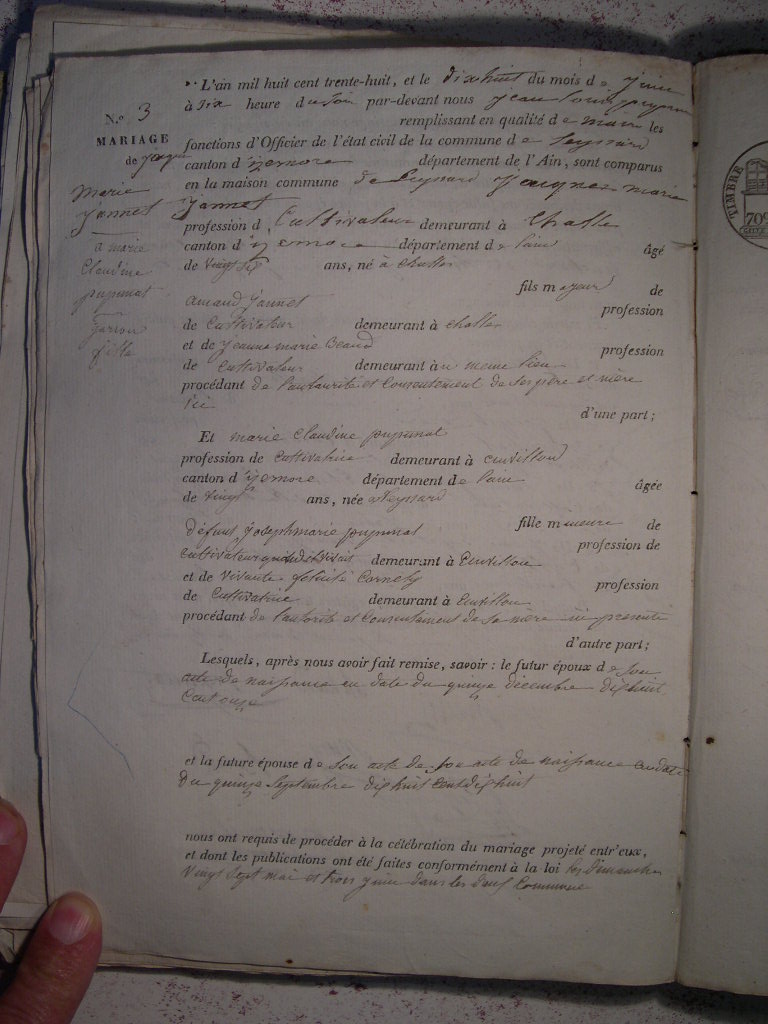 L'an mil huit cent trente-huit, et le dixhuit du mois de juin
à six heure du soir par-devant nous jean louis
remplissant en qualité de maire les
fonctions d'Officier de l'état civil de la commune de Leyssard
canton d'izernore département de l'Ain, sont comparus
en la maison commune de Leyssard jacques marie
jannet
profession d cultivateur demeurant à Challes
canton d'izernore département de l'ain âgé
de vingt six ans, né à challes
fils majeur de
amand jannet profession
de Cultivateur demeurant à challes
et de jeanne marie Beaud profession
de cultivateur demeurant à u meme lieu
procédant de l'autaurité et Consentement de ses père et mère
ici
d'une part ;
Et marie Claudine pupunat
profession de cultivatrice demeurant à
canton d'izernore département de l'ain âgée
de vingt ans, née a leyssard
fille mineure de
défunt joseph marie pupunat profession de
cultivateur quand il vivait demeurant à
et de vivante profession
de Cultivatrice demeurant à
procédant de l'autorité et Consentement de sa mère ici presente
d'autre part ;
Lesquels, après nous avoir fait remise, savoir : le futur époux de son
acte de naissance en date du quinze decembre dixhuit
Cent onze
et la future épouse de son acte de son acte de naissance en date
du quinze Septembre dixhuit cent dixhuit
nous ont requis de procéder à la célébration du mariage projeté entr'eux,
et dont les publications ont été faites conformément à la loi les dimanches
vingt sept mai et trois juin dans les deux Commune
N.o 3
MARIAGE
de jacque
Marie
jannet
a marie
Claudine
pupunat
garçon
fille
TIMBRE